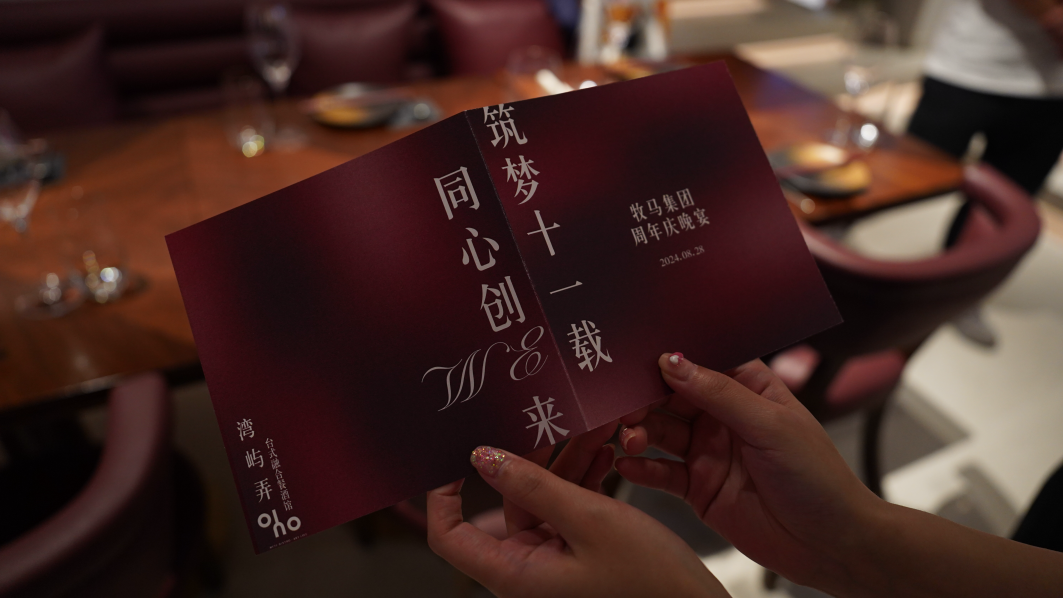 筑梦十一载
同心创WE来
牧马集团
周年庆晚宴
2024.08.28
湾屿弄
台式融合餐酒馆
oho